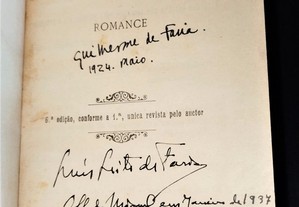 ROMANCE
Guilherme de Faria.
1924. Maio.
6.ª edição, conforme a 1.ª, unica revista pelo auctor
Luís Leite de Faria
em Janeiro de 1937